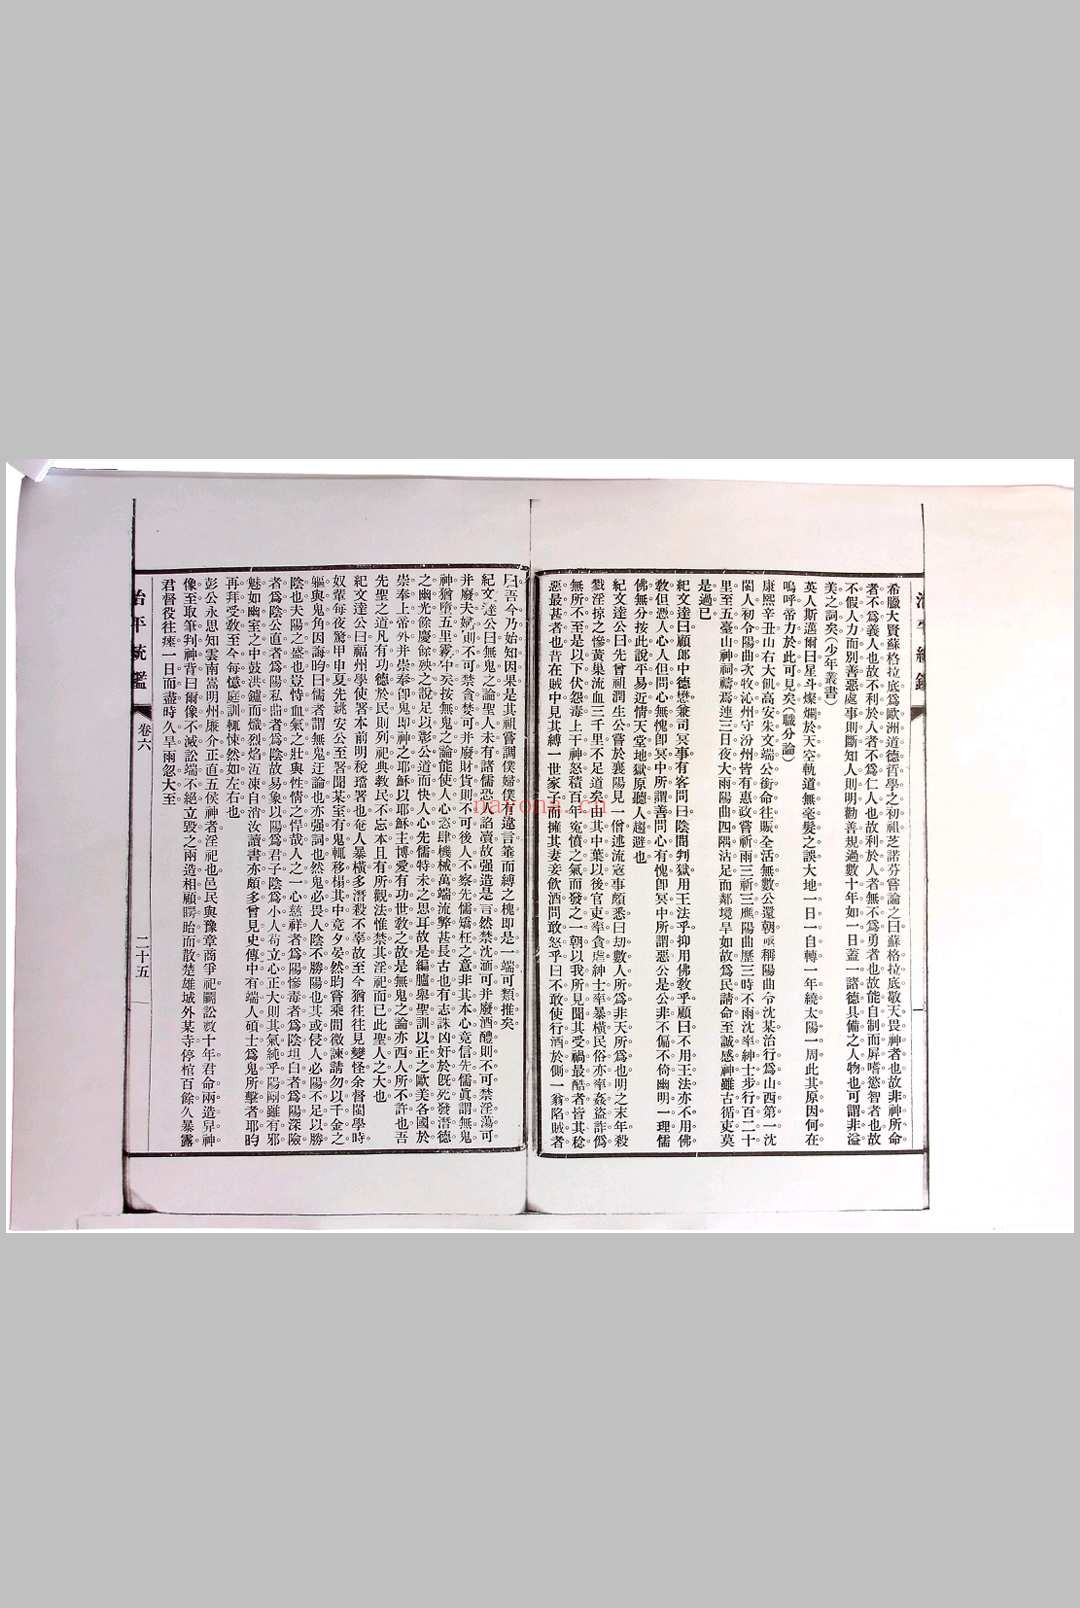 希臘大賢蘇格拉底爲歐洲道德哲學之初祖芝諾芬嘗論之曰蘇格拉底敬天畏神者也故非神所命
者不爲義人也故不利於人者不爲仁人也故利於人者無不爲勇者也故能自制而屏嗜慾智者也故
不假人力而別善惡處事則斷知人則明勸善規過數十年如一日蓋一諸德具備之人物也可謂非溢
美之詞矣(少年叢書)
英人斯邁爾曰星斗燦爛於天空軌道無毫髮之誤大地一日一自轉一年繞太陽一周此其原因何在
嗚呼帝力於此可見矣(職分論)
康熙辛丑山右大飢高安朱文端公銜命往賑全活無數公還朝亟稱陽曲令沈某治行爲山西第一沈
閩人初令陽曲次牧沁州守汾州皆有惠政嘗祈雨三祈三應陽曲歷三時不雨沈率紳士步行百二十
里至五臺山神祠禱焉連三日夜大雨陽曲四隅沾足而鄰境旱如故爲民請命至誠感神雖古循吏莫
是過已
紀文達曰顧郎中德懋兼司冥事有客問曰陰間判獄用王法乎抑用佛教乎顧曰不用王法亦不用佛
教但憑人心人但問心無愧卽冥中所謂善問心有愧卽冥中所謂惡公是公非不偏不倚幽明一理儒
佛無分按此說平易近情天堂地獄原聽人趨避也
紀文達公曰先曾祖潤生公嘗於襄陽見一僧述流寇事頗悉曰劫數人所爲非天所爲也明之末年殺
戮淫掠之慘黃巢流血三千里不足道矣由其中葉以後官吏率貪虐紳士率暴橫民俗亦率姦盜詐僞
無所不至是以下伏怨毒上干神怒積百年寃憤之氣而發之一朝以我所見聞其受禍最酷者皆其稔
惡最甚者也昔在賊中見其縛一世家子而擁其妻妾飲酒問敢怒乎曰不敢使行酒於側一翁陷賊者
曰吾今乃始知因果是其祖嘗調僕婦僕有違言箠而縛之槐卽是一端可類推矣
紀文達公曰無鬼之論聖人未有諸儒恐人諂瀆故强造是言然禁沈湎可并廢酒醴則不可禁淫蕩可
并廢夫婦則不可禁貪婪可并廢財貨則不可後人不察先儒矯枉之意非其本心竟信先儒眞謂無鬼
神猶墮五里霧中矣按無鬼之論能使人心恣肆機械萬端流弊甚長古也有志誅凶奸於旣死發潛德
之幽光餘慶餘殃之說足以彰公道而快人心先儒特未之思耳故是編臚舉聖訓以正之歐美各國於
崇奉上帝外并崇奉卽鬼卽神之耶穌以耶穌主博愛有功世教之故是無鬼之論亦西人所不許也吾
先聖之道凡有功德於民則列祀典教民不忘本且有所觀法惟禁其淫祀而已此聖人之大也
紀文達公曰福州學使署本前明稅璫署也奄人暴橫多潛殺不辜故至今猶往往見變怪余督閩學時
奴輩每夜驚甲申夏先姚安公至署聞某室有鬼輒移榻其中竟夕晏然昀嘗乘間微諫請勿以千金之
軀與鬼角因誨昀曰儒者謂無鬼迂論也亦强詞也然鬼必畏人陰不勝陽也其或侵人必陽不足以勝
陰也夫陽之盛也豈恃血氣之壯與性情之悍哉人之一心慈祥者爲陽慘毒者爲陰坦白者爲陽深險
者爲陰公直者爲陽私曲者爲陰故易象以陽爲君子陰爲小人苟立心正大則其氣純乎陽剛雖有邪
魅如幽室之中鼓洪鑪而熾烈焰沍凍自消汝讀書亦頗多曾見史傳中有端人碩士爲鬼所擊者耶昀
再拜受教至今每憶庭訓輒悚然如左右也
彭公永思知雲南嵩明州廉介正直五侯神者淫祀也邑民與豫章商爭祀鬬訟數十年君命兩造舁神
像至取筆判神背曰爾像不滅訟端不絕立毀之兩造相顧睯眙而散楚雄城外某寺停棺百餘久暴露
君督役往瘞一日而盡時久旱雨忽大至
治平統鑑
卷六
二十五
nayona.cn